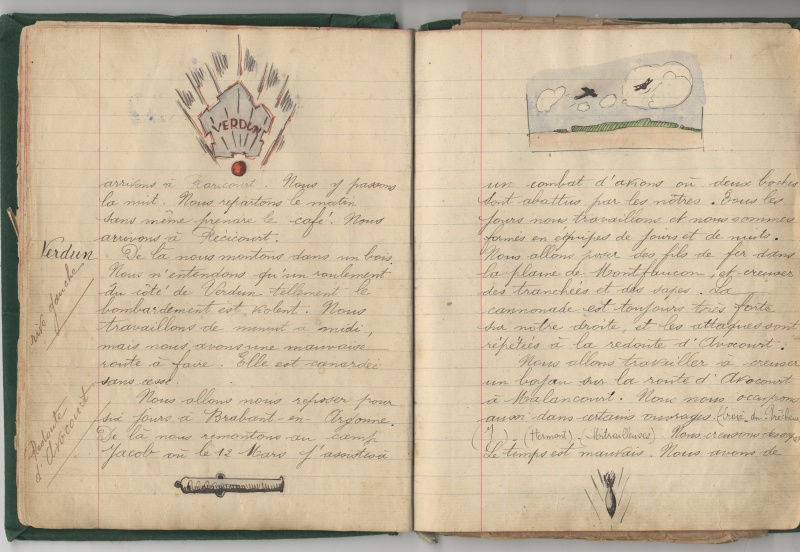 VERDUN
arrivons à Rarécourt. Nous y passons
la nuit. Nous repartons le matin
sans même prendre le café. Nous
arrivons à Récicourt.
Verdun
De là nous montons dans un bois.
Nous n'entendons qu'un roulement
du côté de Verdun tellement le
bombardement est violent. Nous
travaillons de minuit à midi,
mais nous avons une mauvaise
route à faire. Elle est canardée
sans cesse.
rive gauche
Nous allons nous reposer pour
six jours à Brabant-en-Argonne.
De là nous remontons au camp
Jacob où le 12 Mars j'assiste à
Redoute
d'Avocourt
un combat d'avions où deux boches
sont abattus par les nôtres. Tous les
jours nous travaillons et nous sommes
formés en équipes de jours et de nuits.
Nous allons poser des fils de fer dans
la plaine de Montfaucon, et creuser
des tranchées et des sapes. La
cannonade est toujours très forte
sur notre droite, et les attaques sont
répétées à la redoute d'Avocourt.
Nous allons travailler à creuser
un boyau sur la route d'Avocourt
à Malancourt. Nous nous occupons
aussi dans certains ouvrages
(Hermont) - Mitrailleuses). Nous creusons des
Le temps est mauvais. Nous avons de